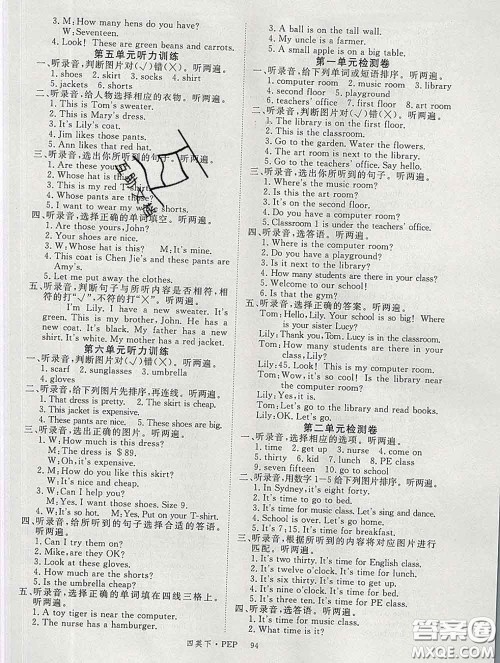 3. M: How many hens do you have?
W: I have eight.
4. Look! These are green beans and carrots.
第五单元听力训练
一、听录音,判断图片对(√)错(×)。听两遍。
1. shoes 2. skirt 3. socks 4. shirt
5. jackets 6. shorts
二、听录音,给人物选择相应的衣物。听两遍。
1. This is Tom's sweater.
2. This is Mary's dress.
3. It's Lily's coat.
4. Jim likes those pants.
5. Ann likes that red hat.
三、听录音,选出你所听到的句子。听两遍。
1. Are these yours?
2. Whose hat is this?
3. This is my red T-shirt.
4. Whose is this?
5. I want to wear my shorts.
四、听录音,选择正确的单词填空。听两遍。
1. Are those yours, John?
2. Your shoes are nice.
3. W: Whose hat is this? M: It's Mike's.
4. This coat is Chen Jie's and these pants are
Amy's.
5. Let me put away the clothes.
五、听录音,判断句子与所听内容是否相符,相
符的打"√",不符的打"×"。听两遍。
I'm Lily. I have a new sweater. It's red.
This is my brother, John. He has a new
coat. It's black. My father and mother have
new pants. They are white.
第六单元听力训练
一、听录音,判断图片对(√)错(×)。听两遍。
1. scarf 2. sunglasses 3. umbrella
4. gloves
二、听录音,给下列图片先排序,再连线。听两遍。
1. That dress is pretty. 2. The skirt is cheap.
3. This umbrella is expensive.
4. These pants are nice. 5. These shoes are big.
三、听录音,选出正确的图片。听两遍。
1. W: How much is this dress?
M: The dress is $89.
W: Oh, it's expensive.
2. M: How do you like this skirt?
W: It's very cheap.
3. W: Can I help you?
M: Yes. I want those shoes. Size 9.
4. W: It's hot today. M: Yes. Put on your T-shirt.
四、听录音,给所听到的句子选择合适的答语。听两遍。
1. Can I try them on?
2. Mike, are they OK?
3. Look at these gloves.
4. How much are the shorts?
5. Is the umbrella cheap?
五、听录音,将所缺单词填在四线三格上。听两遍。
1. A toy tiger is near the computer.
2. The nurse has a hamburger.
3. A ball is on the tall wall.
4. My uncle is a farmer.
5. A small apple is on a big table.
第一单元检测卷
一、听录音,给下列单词或短语排序。听两遍。
1. computer room 2. music room
3. library 4. second floor 5. playground
6. teachers' office 7. first floor 8. art room
二、听录音,判断图片对(√)错(×)。听两遍。
1. The library is on the first floor.
2. This is the classroom.
3. Go to the garden. Water the flowers.
4. The art room is next to the library.
5. Go to the teachers' office. Say hello.
三、听录音,选出你所听到的句子。听两遍。
1. Where's the music room?
2. This is my classroom.
3. Is this the art room?
4. Do you have a playground?
5. Classroom 1 is under the teachers' office.
四、听录音,选答语。听两遍。
1. Where is the computer room?
2. Do you have a playground?
3. Is it next to the library?
4. How many students are there in your class?
5. Welcome to our school!
6. Is that the gym?
五、听录音,选择正确的答案。听两遍。
Tom: Hello, Lily. Your school is so big! Where
is your sister Lucy?
Lily: Thank you, Tom. Lucy is in the classroom.
Tom: How many students are there in your class?
Lily: 45. Look! This is my computer room.
Tom: Wow! It's so nice! Is the library near
the computer room?
Lily: Yes, it is.
Tom: Let's go to the library and read books.
Lily: OK.
第二单元检测卷
一、听录音,选择相应的选项。听两遍。
1. computer 2. dinner 3. music
4. thirty 5. kid 6. lunch 7. nurse 8. PE class
9. seven fifteen 10. go to school
二、听录音,用数字1—5给下列图片排序。听两遍。
1. In Sydney, it's eight forty.
2. It's time to go to bed.
3. It's time for music class. Let's sing and dance.
4. It's time to go to school.
5. It's 7:15. It's time for breakfast.
三、听录音,根据所听到的内容将对应图片进行
匹配。听两遍。
1. It's two thirty. It's time for English class.
2. It's twelve o'clock. It's time for lunch.
3. It's six forty. It's time to get up.
4. It's five o'clock. It's time to go home.
5. It's three thirty. It's time for PE class.
四、听录音,选答语。听两遍。
1. It's time for dinner.
2. It's time to get up.
四英下·PEP 94